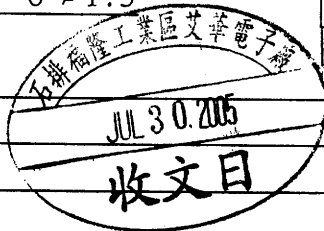 石排福隆工業區艾華電子廠
JUL 30.2005
收文日